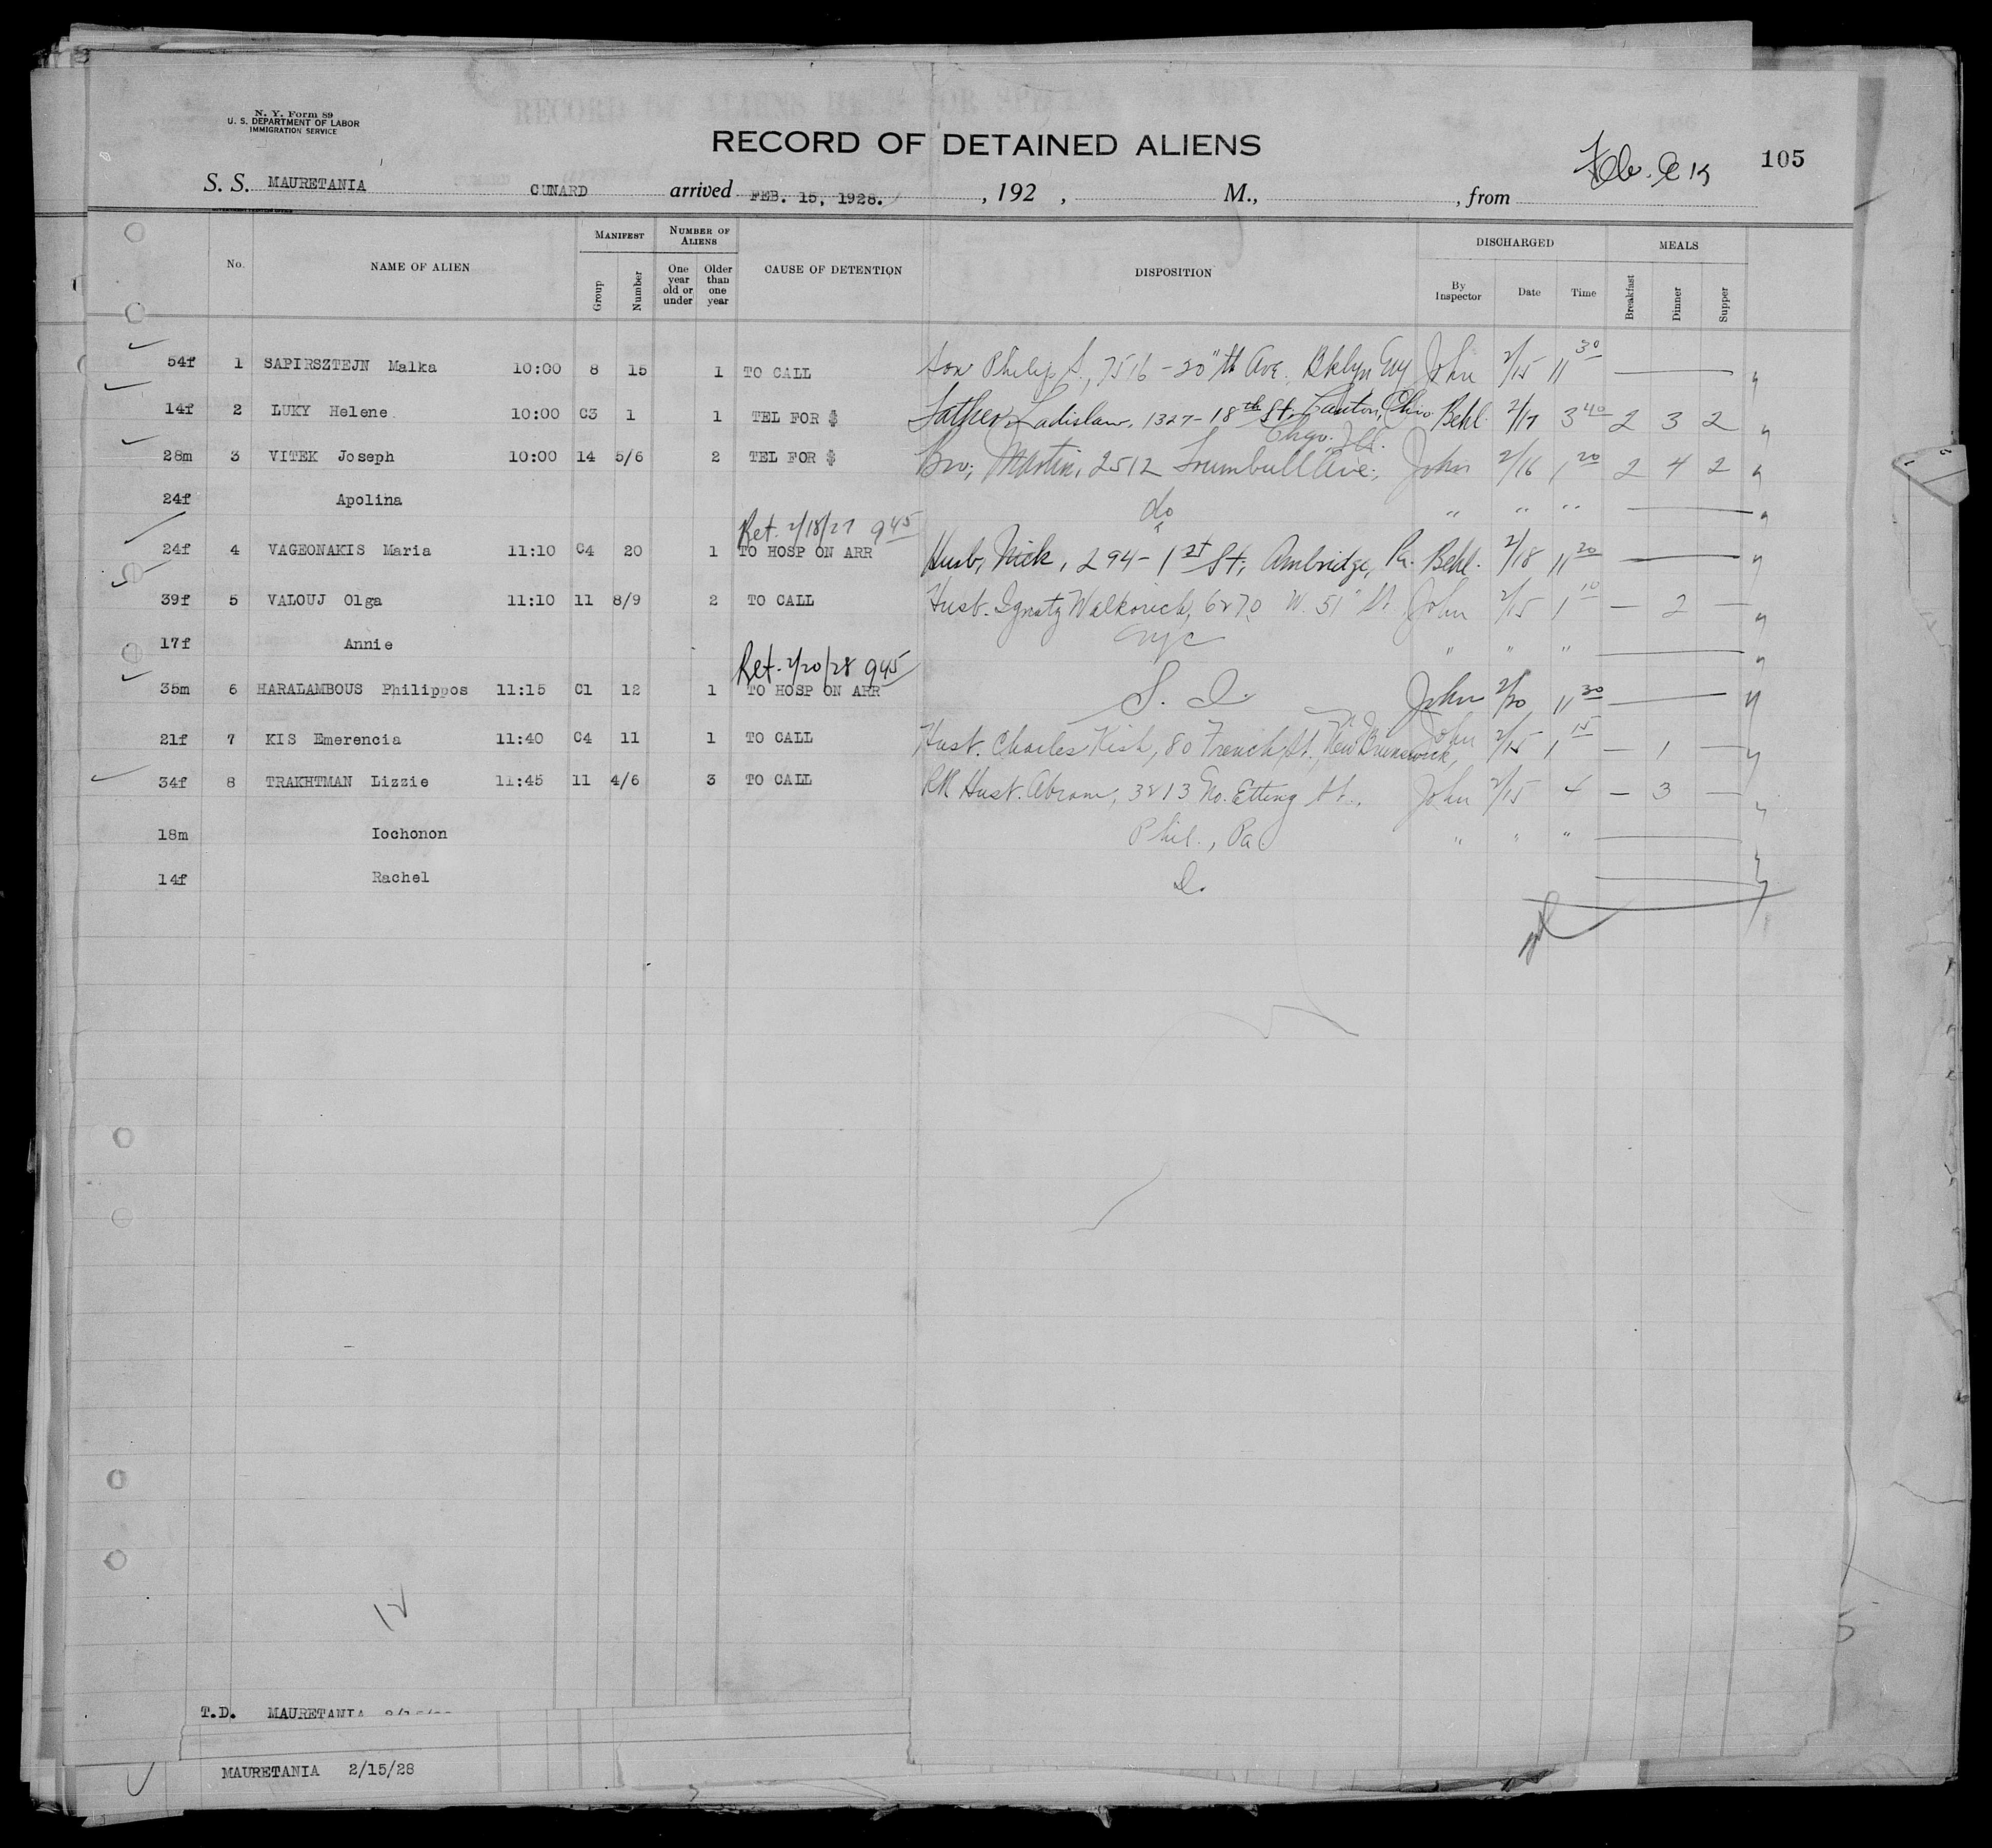 N. Y. Form 89
U. S. DEPARTMENT OF LABOR
IMMIGRATION SERVICE
RECORD OF DETAINED ALIENS
105
S. S. MAURETANIA CUNARD arrived FEB. 15, 1928. , 192 , M., , from
MANIFEST NUMBER OF ALIENS DISCHARGED MEALS
No. NAME OF ALIEN Group Number One year old or under Older than one year CAUSE OF DETENTION DISPOSITION By Inspector Date Time Breakfast Dinner Supper
54f 1 SAPIRSZTEJN Malka 10:00 8 15 1 TO CALL Son Philip S., 7516 - 20"th Ave., Bklyn NY John 2/15 11 30
14f 2 LUKY Helene 10:00 C3 1 1 TEL FOR $ Father Ladislaw, 1327 - 18th St. Canton, Ohio. Behl. 2/17 3 40 2 3 2
Chgo. Ill.
28m 3 VITEK Joseph 10:00 14 5/6 2 TEL FOR $ Bro; Martin, 2512 Trumbull Ave; John 2/16 1 20 2 4 2
24f Apolina do " " "
Ret. 2/18/27 9 45
24f 4 VAGEONAKIS Maria 11:10 C4 20 1 TO HOSP ON ARR Husb, Nick, 294 - 1st St; Ambridge, Pa. Behl. 2/18 11 20
39f 5 VALOUJ Olga 11:10 11 8/9 2 TO CALL Husb. Ignatz Walkovich, W. 51" St. John 2/15 1 10 — 2 —
17f Annie NYC " " "
Ret. 2/20/28 9 45
35m 6 HARALAMBOUS Philippos 11:15 C1 12 1 TO HOSP ON ARR S. I. John 2/20 11 30
21f 7 KIS Emerencia 11:40 C4 11 1 TO CALL Husb. Charles Kish, 80 French St., New Brunswick, John 2/15 1 15 — 1 —
34f 8 TRAKHTMAN Lizzie 11:45 11 4/6 3 TO CALL Husb. Abram, 3213 No. Etting St., John 2/15 4 — 3 —
18m Iochonon Phil., Pa " " "
14f Rachel
12
T.D. MAURETANIA
MAURETANIA 2/15/28